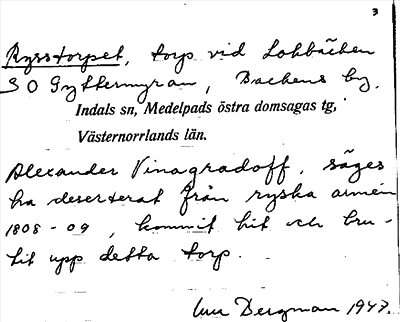 3
Rysstorpet, torp vid Lokbäcken
SO Gyttermyran, Backens by.
Indals sn, Medelpads östra domsagas tg,
Västernorrlands län.
Alexander Vinagradoff, säges
ha deserterat från ryska armén
1808-09, kommit hit och bru-
tit upp detta torp.
Bergman 1947.